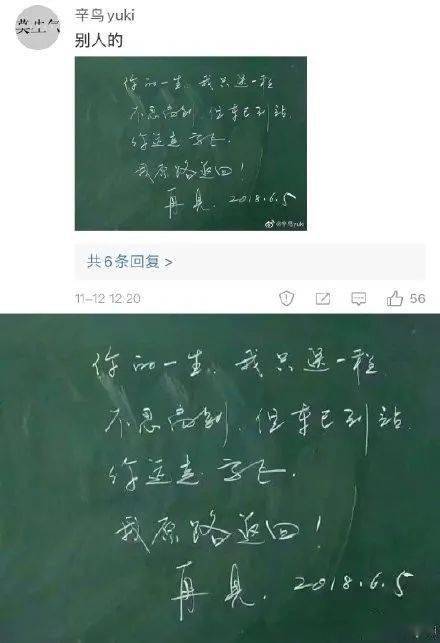 莫生气
辛鸟yuki
别人的
你的一生,我只送一程
不忍离别,但车已到站.
你远走高飞.
我原路返回!
再见. 2018.6.5
@辛鸟yuki
共6条回复 >
11-12 12:20
56
你的一生,我只送一程
不忍离别,但车已到站.
你远走高飞.
我原路返回!
再见. 2018.6.5